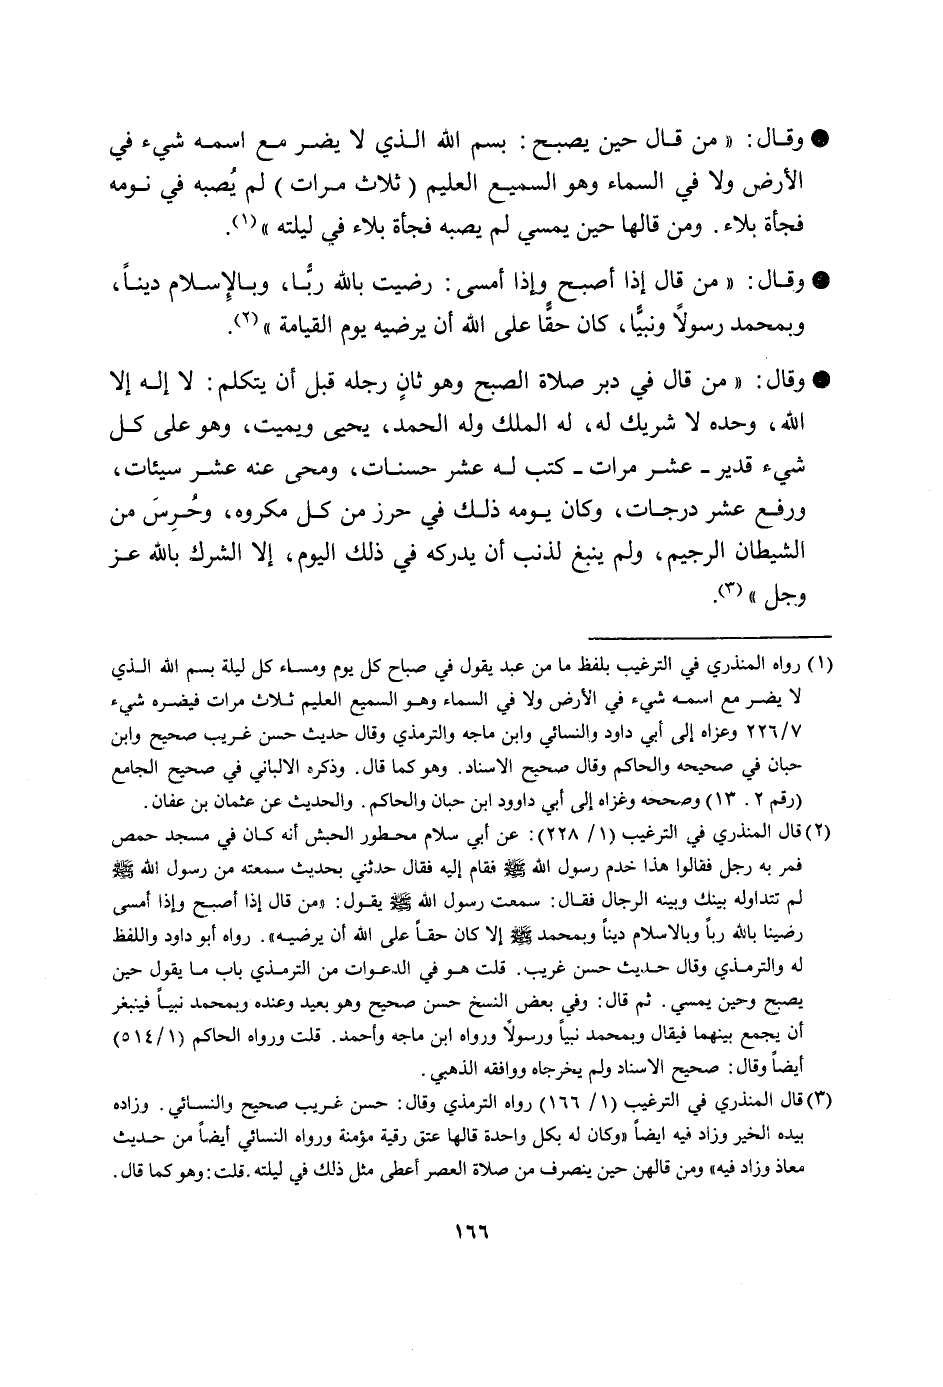 ● وقـال: « من قـال حين يصبـح: بسم الله الـذي لا يضـر مـع اسمـه شيء في
الأرض ولا في السماء وهو السميـع العليم (ثلاث مـرات) لم يُصبه في نـومه
فجأة بلاء. ومن قالها حين يمسي لم يصبه فجأة بلاء في ليلته »(١).
● وقـال: « من قال إذا أصبـح وإذا أمسى: رضيت بالله ربًّا، وبـالإسـلام دينـاً،
وبمحمد رسولاً ونبيًّا، كان حقًّا على الله أن يرضيه يوم القيامة »(٢).
● وقال: « من قال في دبر صلاة الصبح وهو ثانٍ رجله قبل أن يتكلم: لا إلـه إلا
الله، وحده لا شريك له، له الملك وله الحمد، يحيى ويميت، وهو على كـل
شيء قدير ـ عشـر مرات ـ كتب لـه عشر حسنـات، ومحى عنه عشـر سيئات،
ورفـع عشر درجـات، وكان يـومه ذلـك في حرز من كـل مكروه، وحُرِسَ من
الشيطان الرجيم، ولم ينبغ لذنب أن يدركه في ذلك اليوم، إلا الشرك بالله عـز
وجل »(٣).
(١) رواه المنذري في الترغيب بلفظ ما من عبد يقول في صباح كل يوم ومساء كل ليلة بسم الله الـذي
لا يضـر مع اسمـه شيء في الأرض ولا في السماء وهـو السميع العليم ثـلاث مرات فيضـره شيء
٢٢٦/٧ وعزاه إلى أبي داود والنسائي وابن ماجه والترمذي وقال حديث حسن غـريب صحيح وابن
حبان في صحيحه والحاكم وقال صحيح الاسناد. وهو كما قال. وذكره الالباني في صحيح الجامع
(رقم ٢. ١٣) وصححه وغزاه إلى أبي داوود ابن حبان والحاكم. والحديث عن عثمان بن عفان.
(٢) قال المنذري في الترغيب (١/ ٢٢٨): عن أبي سلام محطور الحبش أنه كـان في مسجد حمص
فمر به رجل فقالوا هذا خدم رسول الله ﷺ فقام إليه فقال حدثني بحديث سمعته من رسول الله ﷺ
لم تتداوله بينك وبينه الرجال فقـال: سمعت رسول الله ﷺ يقـول: «من قال إذا أصبح وإذا أمسى
رضينا بالله رباً وبالاسلام ديناً وبمحمد ﷺ إلا كان حقـاً على الله أن يرضيـه». رواه أبو داود واللفظ
له والترمـذي وقال حـديث حسن غريب. قلت هـو في الدعـوات من الترمذي باب مـا يقول حين
يصبح وحين يمسي. ثم قال: وفي بعض النسخ حسن صحيح وهو بعيد وعنده وبمحمد نبيـاً فينبغر
أن يجمع بينهما فيقال وبمحمد نبياً ورسولاً ورواه ابن ماجه وأحمد. قلت ورواه الحاكم (٥١٤/١)
أيضاً وقال: صحيح الاسناد ولم يخرجاه ووافقه الذهبي.
(٣) قال المنذري في الترغيب (١/ ١٦٦) رواه الترمذي وقال: حسن غـريب صحيح والنسـائي. وزاده
بيده الخير وزاد فيه ايضاً «وكان له بكل واحدة قالها عتق رقية مؤمنة ورواه النسائي أيضاً من حـديث
معاذ وزاد فيه» ومن قالهن حين ينصرف من صلاة العصر أعطى مثل ذلك في ليلته. قلت: وهو كما قال.
١٦٦